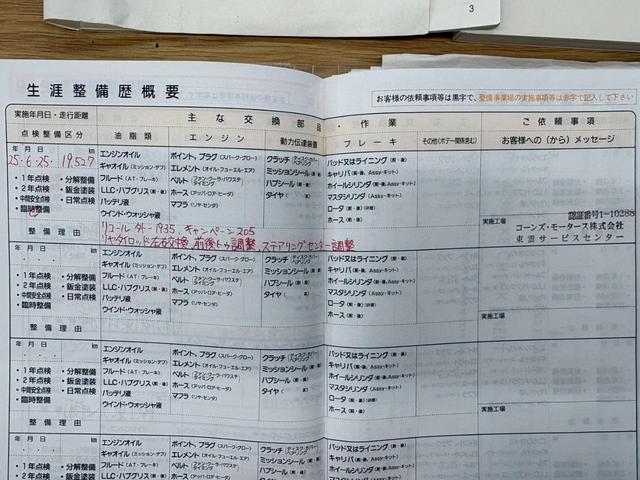 3
生涯整備歴概要
お客様の依頼事項等は黒字で、整備事業場の実施事項等は赤字で記入して下さい
実施年月日・走行距離 主な交換部品・作業 ご依頼事項
点検整備区分 油脂類 エンジン 動力伝達装置 ブレーキ その他(ボデー関係含む) お客様への(から)メッセージ
年 月 日 km エンジンオイル ポイント、プラグ(スパーク・グロー) クラッチ パッド又はライニング(前・後)
25・6・25・ 19527 ギャオイル(ミッション・デフ) エレメント(オイル・フューエル・エア) ミッションシール(前・後) キャリパ(前・後、Assy・キット)
・1年点検 ・分解整備 フルード(AT・ブレーキ) ベルト ハブシール(前・後) ホイールシリンダ(Assy・キット)
・2年点検 ・鈑金塗装 LLC・ハブグリス(前・後) ホース(アッパ・ロア・ヒータ) タイヤ( 本) マスタシリンダ(Assy・キット)
・中間安全点検 ・日常点検 バッテリ液 マフラ(ヤ・センタ) ロータ(前・後)
・臨時整備 ウインド・ウォッシャ液 ホース(前・後) 認証番号1-10288
整備理由 リコール 外-1935、キャンペーン205 コーンズ・モータース株式会社
タイロッド左右交換、前後トゥ調整、ステアリングセンター調整 東雲サービスセンター
年 月 日 km エンジンオイル ポイント、プラグ(スパーク・グロー) クラッチ パッド又はライニング(前・後)
ギャオイル(ミッション・デフ) エレメント(オイル・フューエル・エア) ミッションシール(前・後) キャリパ(前・後、Assy・キット)
・1年点検 ・分解整備 フルード(AT・ブレーキ) ベルト ハブシール(前・後) ホイールシリンダ(Assy・キット)
・2年点検 ・鈑金塗装 LLC・ハブグリス(前・後) ホース(アッパ・ロア・ヒータ) タイヤ( 本) マスタシリンダ(Assy・キット)
・中間安全点検 ・日常点検 バッテリ液 マフラ(ヤ・センタ) ロータ(前・後)
・臨時整備 ウインド・ウォッシャ液 ホース(前・後) 実施工場
整備理由
年 月 日 km エンジンオイル ポイント、プラグ(スパーク・グロー) クラッチ パッド又はライニング(前・後)
ギャオイル(ミッション・デフ) エレメント(オイル・フューエル・エア) ミッションシール(前・後) キャリパ(前・後、Assy・キット)
・1年点検 ・分解整備 フルード(AT・ブレーキ) ベルト ハブシール(前・後) ホイールシリンダ(Assy・キット)
・2年点検 ・鈑金塗装 LLC・ハブグリス(前・後) ホース(アッパ・ロア・ヒータ) タイヤ( 本) マスタシリンダ(Assy・キット)
・中間安全点検 ・日常点検 バッテリ液 マフラ(ヤ・センタ) ロータ(前・後)
・臨時整備 ウインド・ウォッシャ液 ホース(前・後) 実施工場
整備理由
年 月 日 km エンジンオイル ポイント、プラグ(スパーク・グロー) クラッチ パッド又はライニング(前・後)
ギャオイル(ミッション・デフ) エレメント(オイル・フューエル・エア) ミッションシール(前・後) キャリパ(前・後、Assy・キット)
・1年点検 ・分解整備 フルード(AT・ブレーキ) ベルト ハブシール(前・後) ホイールシリンダ(Assy・キット)
・2年点検 ・鈑金塗装 マスタシリンダ(Assy・キット)